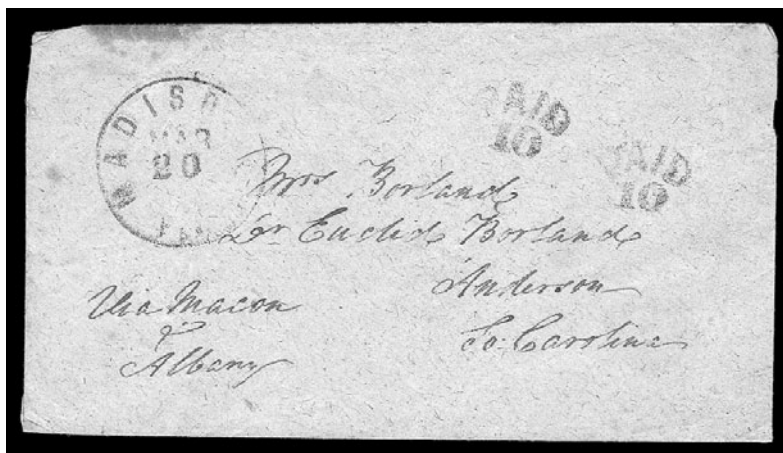 MADISO
MAR
20
PAID
10
PAID
10
Mrs Borland
Dr Euclid Borland
Anderson
So. Carolina
Via Macon
&
Albany